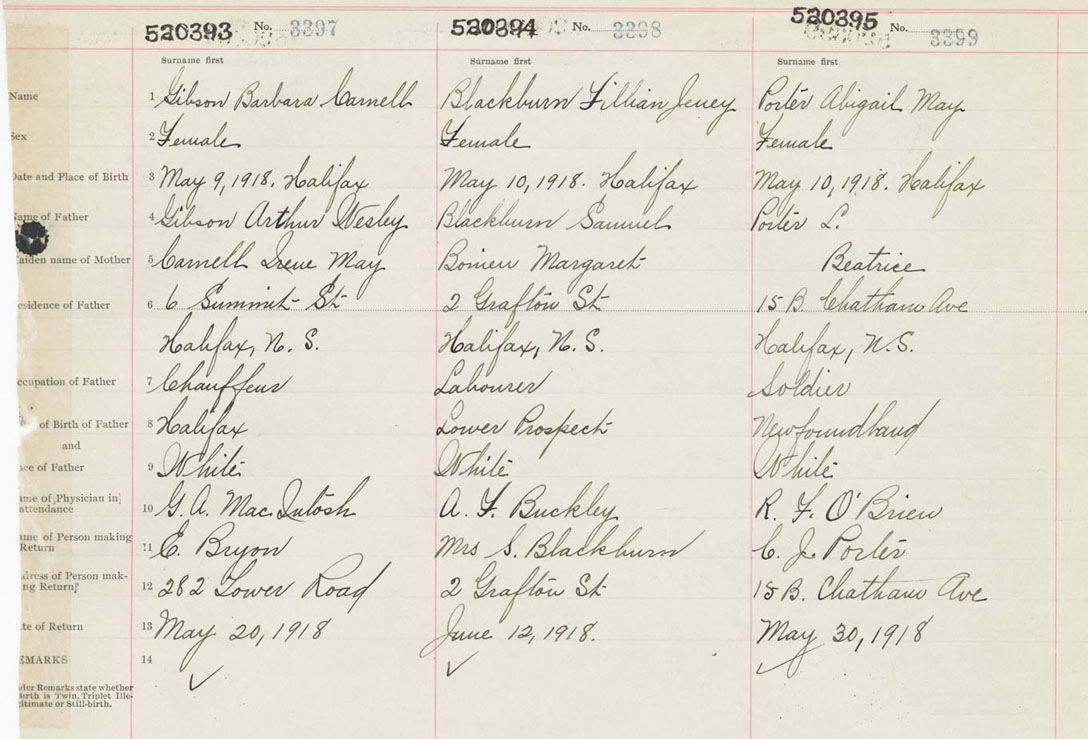 520393 No. 3397 520394 No. 3398 520395 No. 3399
Surname first Surname first Surname first
Name 1 Gibson Barbara Carnell Blackburn Lillian Jeney Porter Abigail May
Sex 2 Female Female Female
Date and Place of Birth 3 May 9, 1918. Halifax May 10, 1918. Halifax May 10, 1918. Halifax
Name of Father 4 Gibson Arthur Wesley Blackburn Samuel Porter L.
aiden name of Mother 5 Carnell Irene May Margaret Beatrice
esidence of Father 6 6 Summit St 2 Grafton St 15 B. Chatham Ave
Halifax, N. S. Halifax, N.S. Halifax, N.S.
ccupation of Father 7 Chauffeur Labourer Soldier
of Birth of Father 8 Halifax Lower Prospect Newfoundland
and
ace of Father 9 White White White
ame of Physician in
attendance 10 G. A. MacIntosh A. F. Buckley R. F. O'Brien
ame of Person making
Return 11 E. Bryon Mrs S. Blackburn C. J. Porter
dress of Person mak-
ng Return 12 282 Lower Road 2 Grafton St 15 B. Chatham Ave
te of Return 13 May 20, 1918 June 12, 1918. May 30, 1918
EMARKS 14
der Remarks state whether
irth is Twin, Triplet Ille-
itimate or Still-birth.